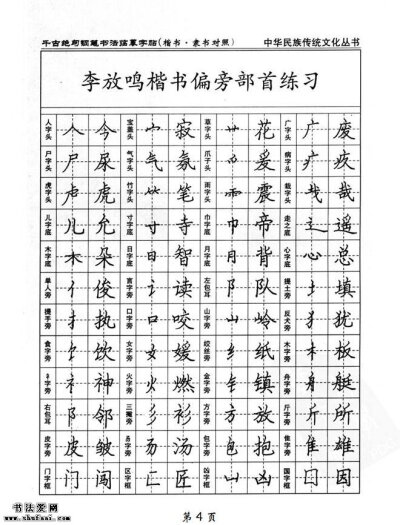 千古绝句钢笔书法临摹字帖(楷书·隶书对照) 中华民族传统文化丛书
李放鸣楷书偏旁部首练习
人字头 人 今 宝盖头 宀 寂 草字头 艹 花 广字头 广 废
尸字头 尸 尿 气字头 气 氛 爪子头 爫 爱 病字头 疒
虎字头 虍 虎 竹字头 ⺮ 笔 雨字头 ⻗ 震 栽字头 𢦏 哉
儿字底 儿 允 寸字底 寸 寺 巾字底 巾 帝 走之底 辶 遥
木字底 木 朵 日字底 日 智 月字底 月 背 心字底 心 总
单人旁 亻 俊 言字旁 讠 读 左包耳 阝 队 提土旁 土 填
提手旁 扌 执 口字旁 口 咬 山字旁 山 岭 反犬旁 犭 犹
食字旁 饣 饮 女字旁 女 媛 绞丝旁 纟 纸 木字旁 木 板
礻字旁 礻 神 火字旁 火 燃 金字旁 钅 镇 舟字旁 舟 艇
右包耳 阝 邻 三撇旁 彡 衫 方字旁 方 放 斤字旁 斤 所
皮字旁 皮 皱 字旁 汤 包字旁 包 抱 隹字旁 隹 雄
门字框 门 闯 区字框 匚 匠 凶字框 凵 凶 国字框 囗 因
书法爱网
www.shufaai.com
第 4 页